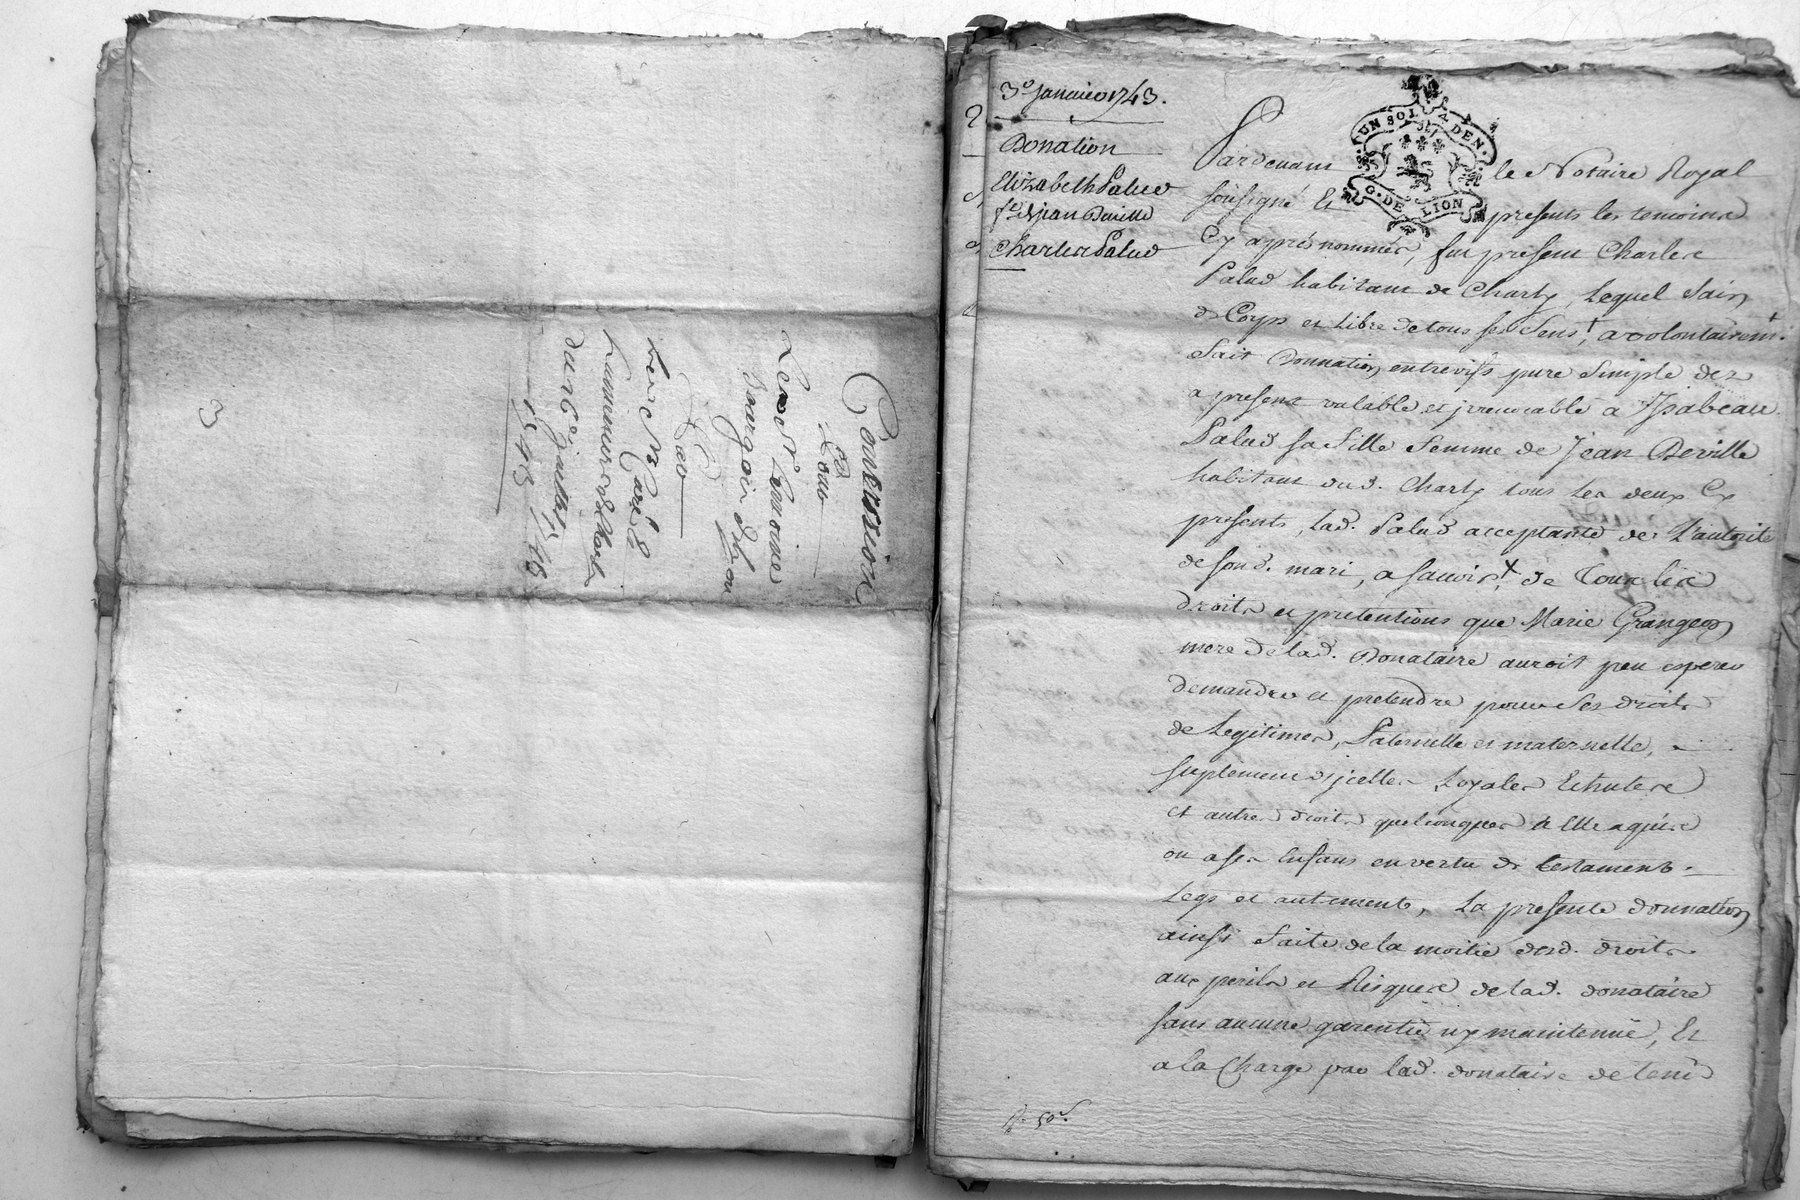 Conversion
Pour
Le Sr Lemoine
Bourgeois de Lyon
3
3e Janvier 1743.
Donation
Elizabeth Palud
fe de jean Deville
Charles Palud
UN SOL 4 DEN.
G. DE LION
Pardevant le Notaire Royal
soussigné Et presents les temoins
Cy apres nommés, fut present Charles
Palud habitant de Charly, Lequel sain
de Corps et Libre de tous ses Sens, + a volontairemt.
fait Donnation entrevifs pure simple dez
a present valable et jrrevocable a Ysabeau
Palud sa fille femme de Jean Deville
habitant dud. Charly tous les deux Cy
presents, lad. Palud acceptante de L'autorité
de sond. mari, a savoir + de Tous les
droits et pretentions que Marie Grangeon
mere de lad. Donataire auroit peu esperer
demander et pretendre pour ses droits
de Legitimes, Paternelle et maternelle,
suplement d'jcelles Loyales Echutes
et autres droits quelconques a Elle aquis
ou a ses Enfans en vertu de testaments
Legs et autrement, La presente donnation
ainsi faite de la moitié desd. droits
aux perils et Risques de lad. donataire
sans aucune garentie ny maintenüe, Et
a la Charge par lad. donataire de tenir